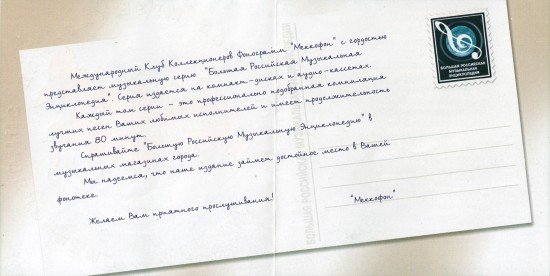 Международный Клуб Коллекционеров Фонограмм "Меккофон" с гордостью
представляет музыкальную серию "Большая Российская Музыкальная
Энциклопедия". Серия издается на компакт-дисках и аудио-кассетах.
Каждый том серии - это профессионально подобранная компиляция
лучших песен Ваших любимых исполнителей и имеет продолжительность
звучания 80 минут.
Спрашивайте "Большую Российскую Музыкальную Энциклопедию" в
музыкальных магазинах города.
Мы надеемся, что наше издание займет достойное место в Вашей
фонотеке.
Желаем Вам приятного прослушивания!
"Меккофон"
БОЛЬШАЯ РОССИЙСКАЯ
МУЗЫКАЛЬНАЯ
ЭНЦИКЛОПЕДИЯ